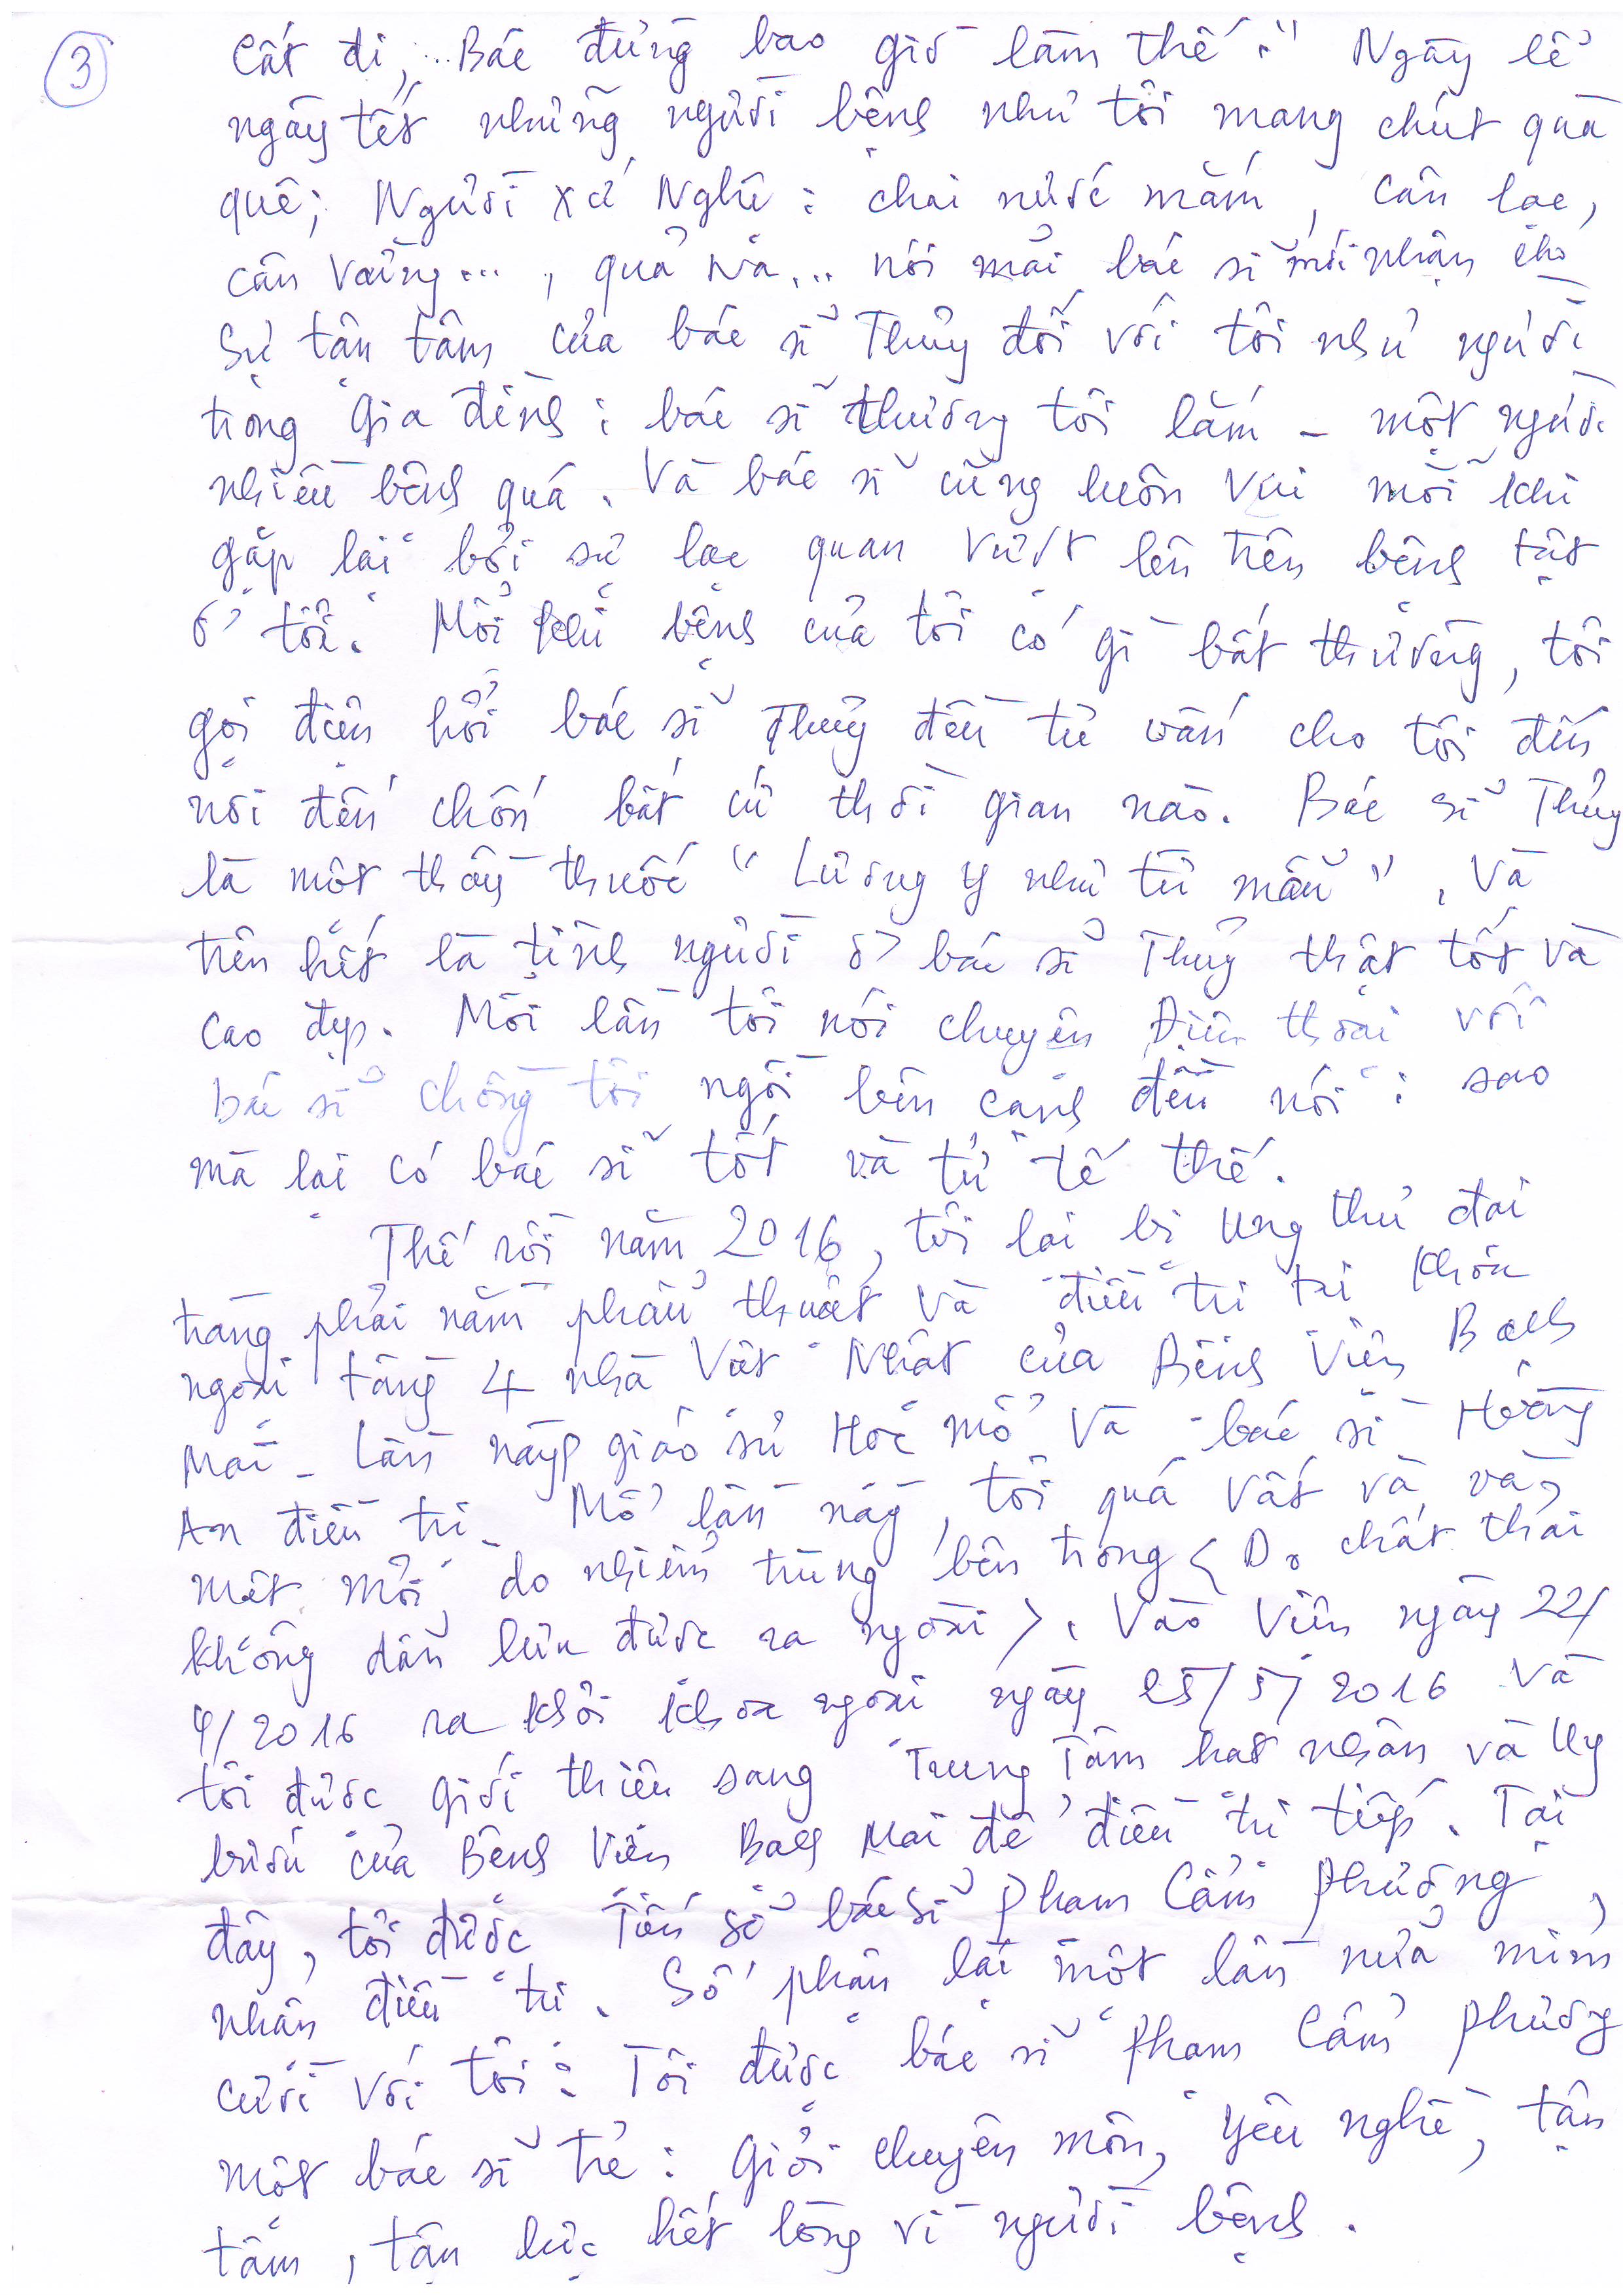 3
Cất đi, .. Bác đừng bao giờ làm thế." Ngày lễ
ngày tết những người bệnh như tôi mang chút quà
quê; Người xứ Nghệ: chai nước mắm, cân lạc,
cân vừng..., quả na... nói mãi bác sĩ mới nhận cho
Sự tận tâm của bác sĩ Thủy đối với tôi như người
trong gia đình: bác sĩ thương tôi lắm - một người
nhiều bệnh quá. Và bác sĩ cũng luôn vui mỗi khi
gặp lại bởi sự lạc quan vượt lên trên bệnh tật
ở tôi. Mỗi khi bệnh của tôi có gì bất thường, tôi
gọi điện hỏi bác sĩ Thủy đều tư vấn cho tôi đến
nơi đến chốn bất cứ thời gian nào. Bác sĩ Thủy
là một thầy thuốc "Lương y như từ mẫu". Và
trên hết là tình người ở bác sĩ Thủy thật tốt và
cao đẹp. Mỗi lần tôi nói chuyện Điện thoại với
bác sĩ chồng tôi ngồi bên cạnh đều nói: sao
mà lại có bác sĩ tốt và tử tế thế.
Thế rồi năm 2016, tôi lại bị Ung thư đại
tràng phải nằm phẫu thuật và điều trị tại khoa
ngoại tầng 4 nhà Việt Nhật của Bệnh Viện Bạch
Mai - Lần này giáo sư Hoè mổ và bác sĩ Hoàng
An điều trị. Mổ lần này, tôi quá vất vả và
mệt mỏi do nhiễm trùng bên trong < Do chất thải
không dẫn lưu được ra ngoài >. Vào Viện ngày 22/
4/2016 ra khỏi khoa ngoại ngày 25/5/2016 và
tôi được giới thiệu sang Trung Tâm hạt nhân và Ung
bướu của Bệnh Viện Bạch Mai để điều trị tiếp. Tại
đây, tôi được Tiến sĩ bác sĩ Phạm Cẩm Phương,
nhận điều trị. Số phận lại một lần nữa mỉm
cười với tôi: Tôi được bác sĩ Phạm Cẩm Phương
một bác sĩ trẻ: Giỏi chuyên môn, yêu nghề, tận
tâm, tận lực hết lòng vì người bệnh.